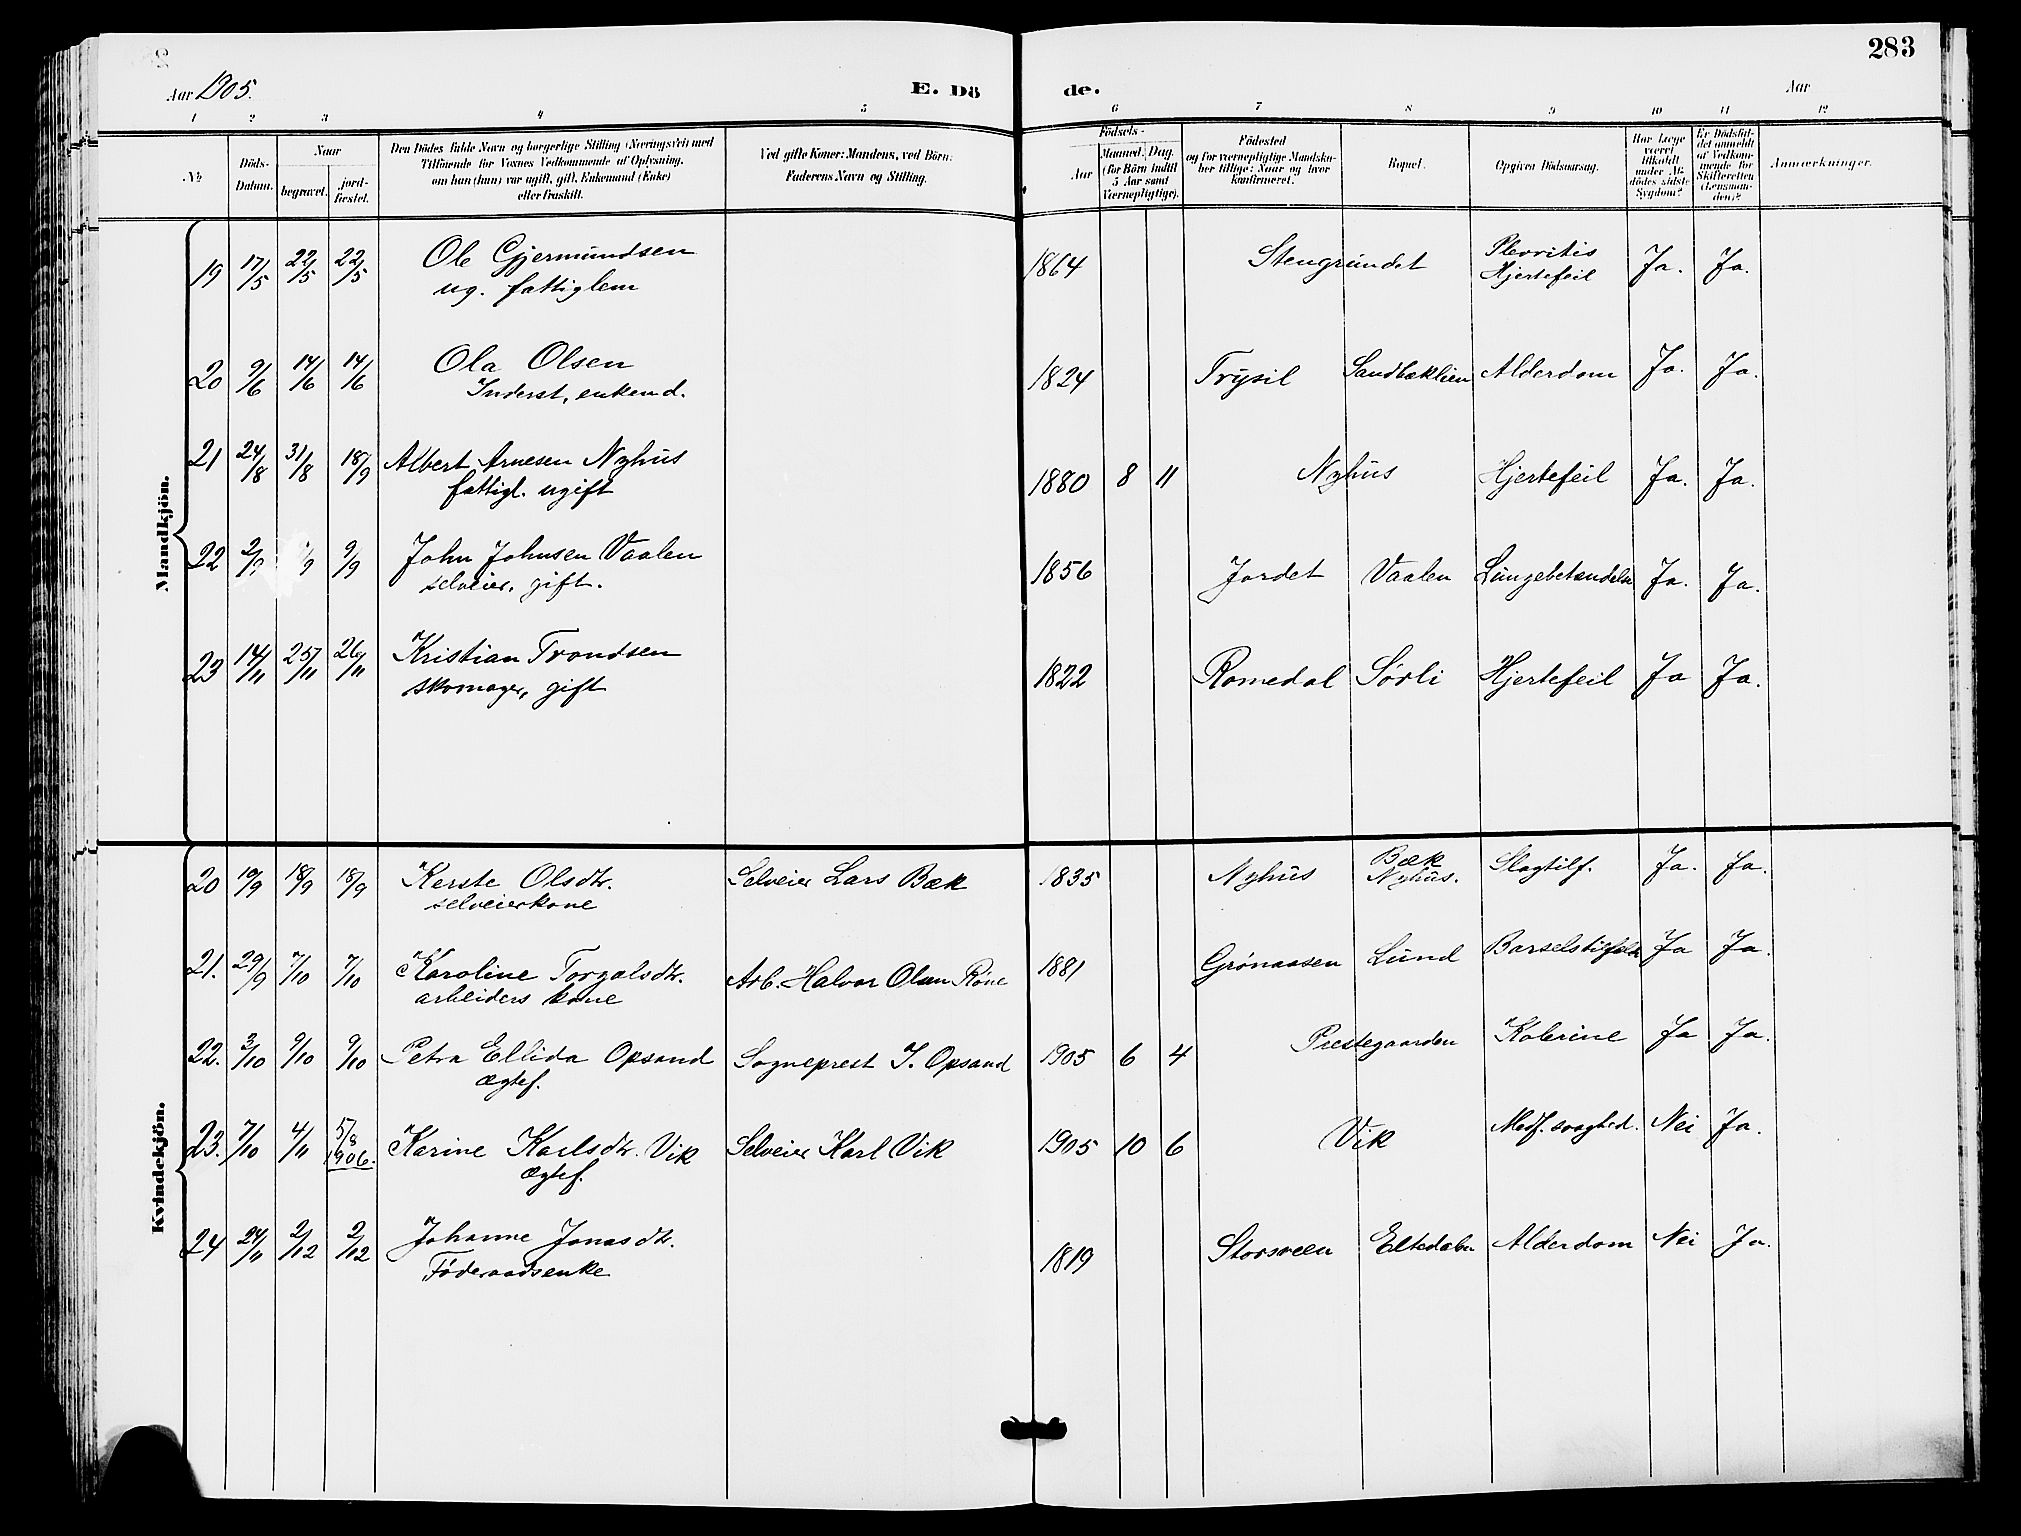 283
Aar 1905.
E. Dö
de.
Aar
1 2 3 4 5 6 7 8 9 10 11 12
No
Döds-
Datum.
Naar
begravet.
jord-
fæstet.
Den Dödes fulde Navn og borgerlige Stilling (Næringsvei) med
Tilföiende for Voxnes Vedkommende af Oplysning,
om han (hun) var ugift, gift, Enkemand (Enke)
eller fraskilt.
Ved gifte Koner: Mandens, ved Börn:
Faderens Navn og Stilling.
Födsels-
Aar
Maaned. Dag.
(for Börn indtil
5 Aar samt
Værnepligtige).
Födested
og for værnepligtige Mandska-
ber tillige: Naar og hvor
konfirmeret.
Bopæl.
Opgiven Dödsaarsag.
Har Læge
været
tilkaldt
under Af-
dödes sidste
Sygdom?
Er Dödsfal-
det anmeldt
af Vedkom-
mende for
Skifteretten
(Lensman-
den)?
Anmærkninger.
Mandkjön.
19 17/5 22/5 22/5 Ole Gjermundsen 1864 Stengrundet Plevritis Ja. Ja.
ug. fattiglem Hjertefeil
20 9/6 14/6 14/6 Ola Olsen 1824 Trysil Sandbæklien Alderdom Ja. Ja.
Inderst, enkemd.
21 24/8 31/8 18/9 Albert Arnesen Nyhus 1880 8 11 Nyhus Hjertefeil Ja. Ja.
fattigl. ugift
22 2/9 /9 9/9 John Johnsen Vaalen 1856 Jordet Vaalen Lungebetændelse Ja. Ja.
selveier, gift.
23 14/11 25/11 26/11 Kristian Trondsen 1822 Romedal Sörli Hjertefeil Ja Ja.
skomager, gift
Kvindekjön.
20 10/9 18/9 18/9 Kerste Olsdtr. Selveier Lars Bæk 1835 Nyhus Bæk Slagtilf. Ja. Ja.
selveierkone Nyhus.
21. 29/9 7/10 7/10 Karoline Torgalsdtr. Arb. Halvor Olsen Röne 1881 Grönaasen Lund Ja Ja.
arbeiders kone
22. 3/10 9/10 9/10 Petra Ellida Opsand Sogneprest I. Opsand 1905 6 4 Prestegaarden Kolerine Ja Ja.
ægtef.
23. 7/10 4/11 5/8 1906. Karine Karlsdtr. Vik Selveier Karl Vik 1905 10 6 Vik Medf. svaghed. Nei Ja.
ægtef.
24 24/11 2/12 2/12 Johanne Jonasdtr. 1819 Storsveen Eltedalen Alderdom Nei Ja.
Föderaadsenke